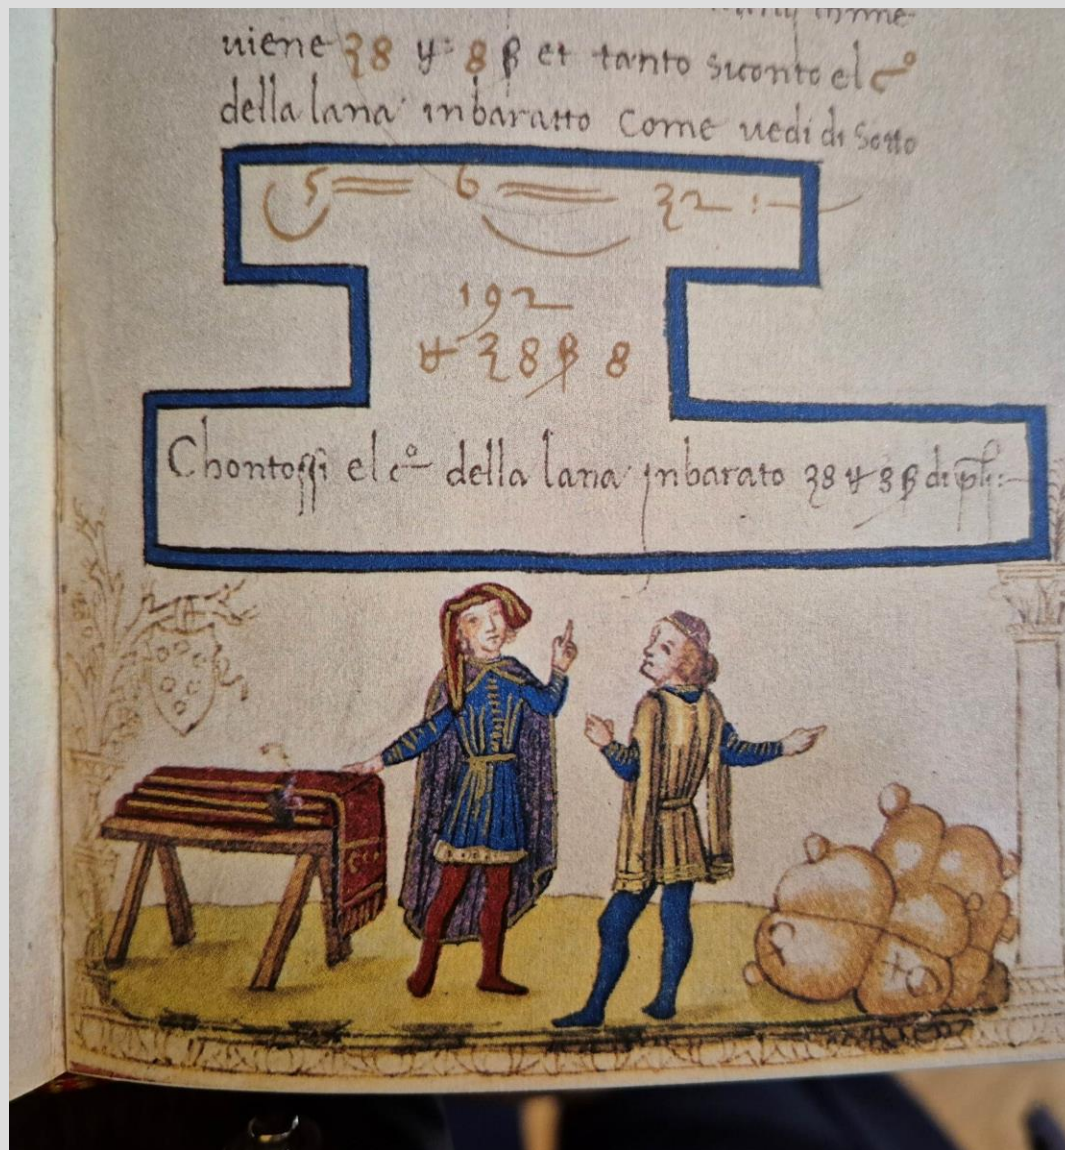 viene 38 ụ: 8 β et tanto siconto el cº
della lana inbaratto Come vedi di Sotto
5 = 6 = 32 :—
192
38 β 8
Chontossi el cº della lana inbarato 38 8 β di